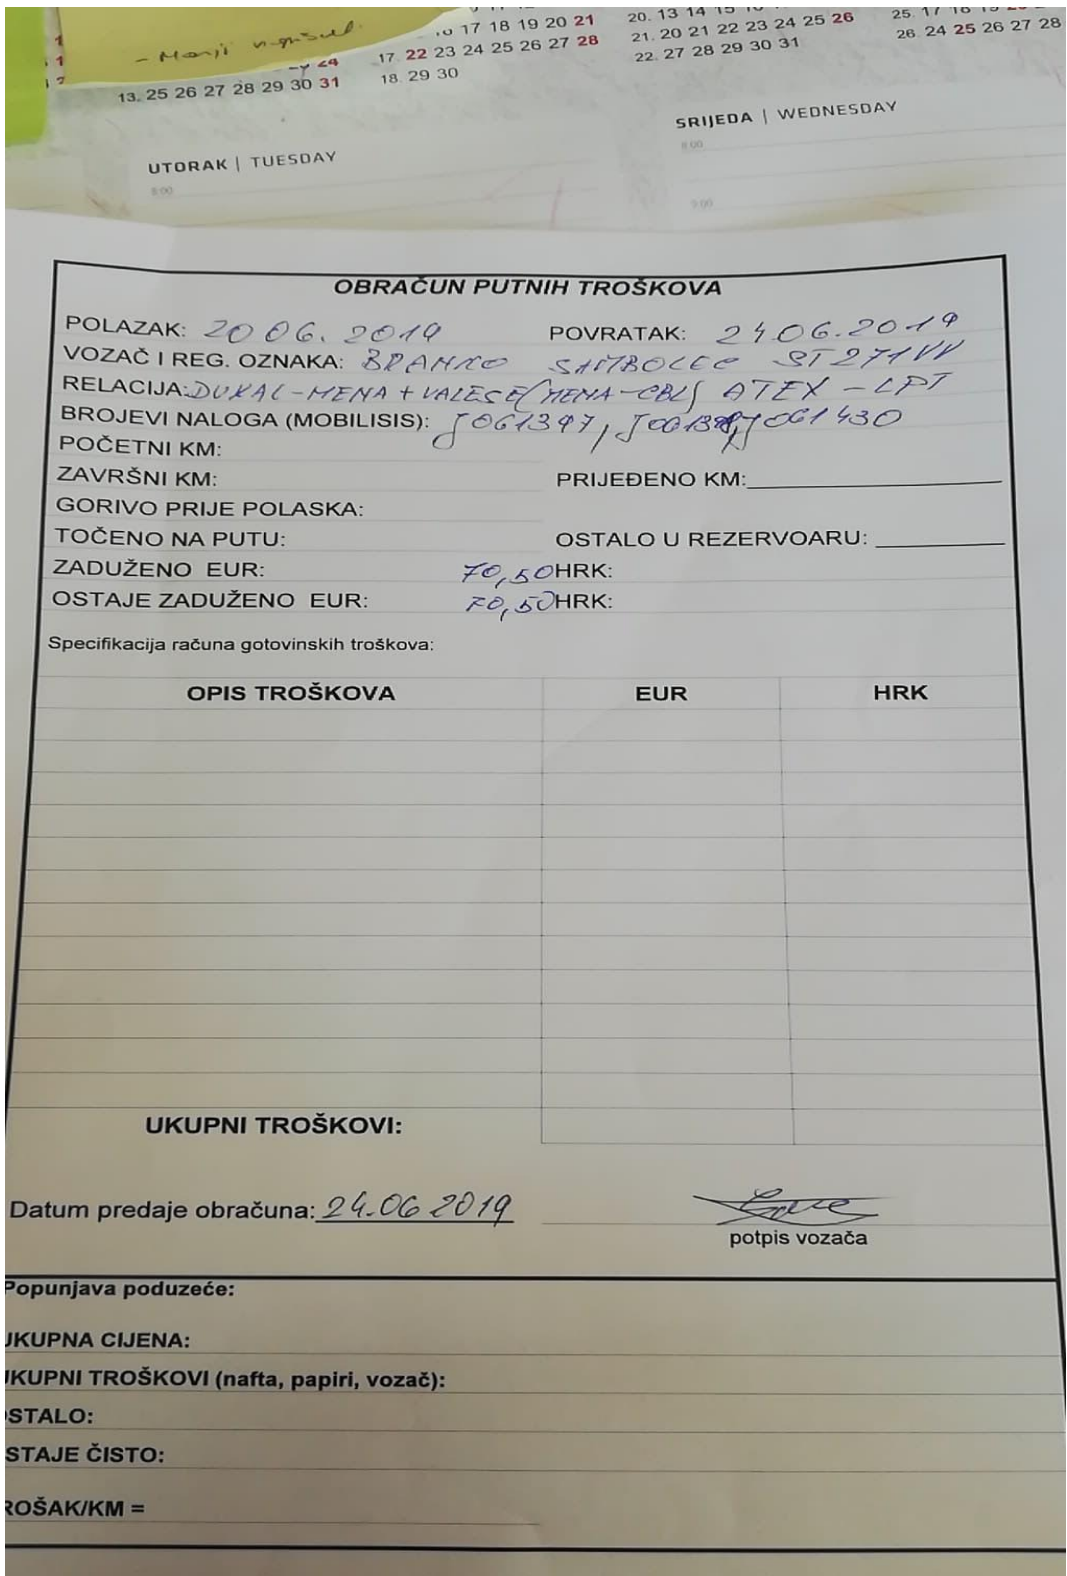 - Manji
17 18 19 20 21
20. 13 14 15
25. 17
24
17. 22 23 24 25 26 27 28
21. 20 21 22 23 24 25 26
26. 24 25 26 27 28
13. 25 26 27 28 29 30 31
18. 29 30
22. 27 28 29 30 31
UTORAK | TUESDAY
8:00
SRIJEDA | WEDNESDAY
8:00
9:00
OBRAČUN PUTNIH TROŠKOVA
POLAZAK: 20 06. 2019 POVRATAK: 24.06.2019
VOZAČ I REG. OZNAKA: BRANKO SAMBOLEC ST271VV
RELACIJA: DUKAL-MENA + VALESE/MENA-CBL/ ATEX - LPT
BROJEVI NALOGA (MOBILISIS): J061397, J061430
POČETNI KM:
ZAVRŠNI KM: PRIJEĐENO KM:
GORIVO PRIJE POLASKA:
TOČENO NA PUTU: OSTALO U REZERVOARU:
ZADUŽENO EUR: 70,50 HRK:
OSTAJE ZADUŽENO EUR: 70,50 HRK:
Specifikacija računa gotovinskih troškova:
OPIS TROŠKOVA EUR HRK
UKUPNI TROŠKOVI:
Datum predaje obračuna: 24.06 2019
potpis vozača
Popunjava poduzeće:
UKUPNA CIJENA:
UKUPNI TROŠKOVI (nafta, papiri, vozač):
OSTALO:
STAJE ČISTO:
ROŠAK/KM =